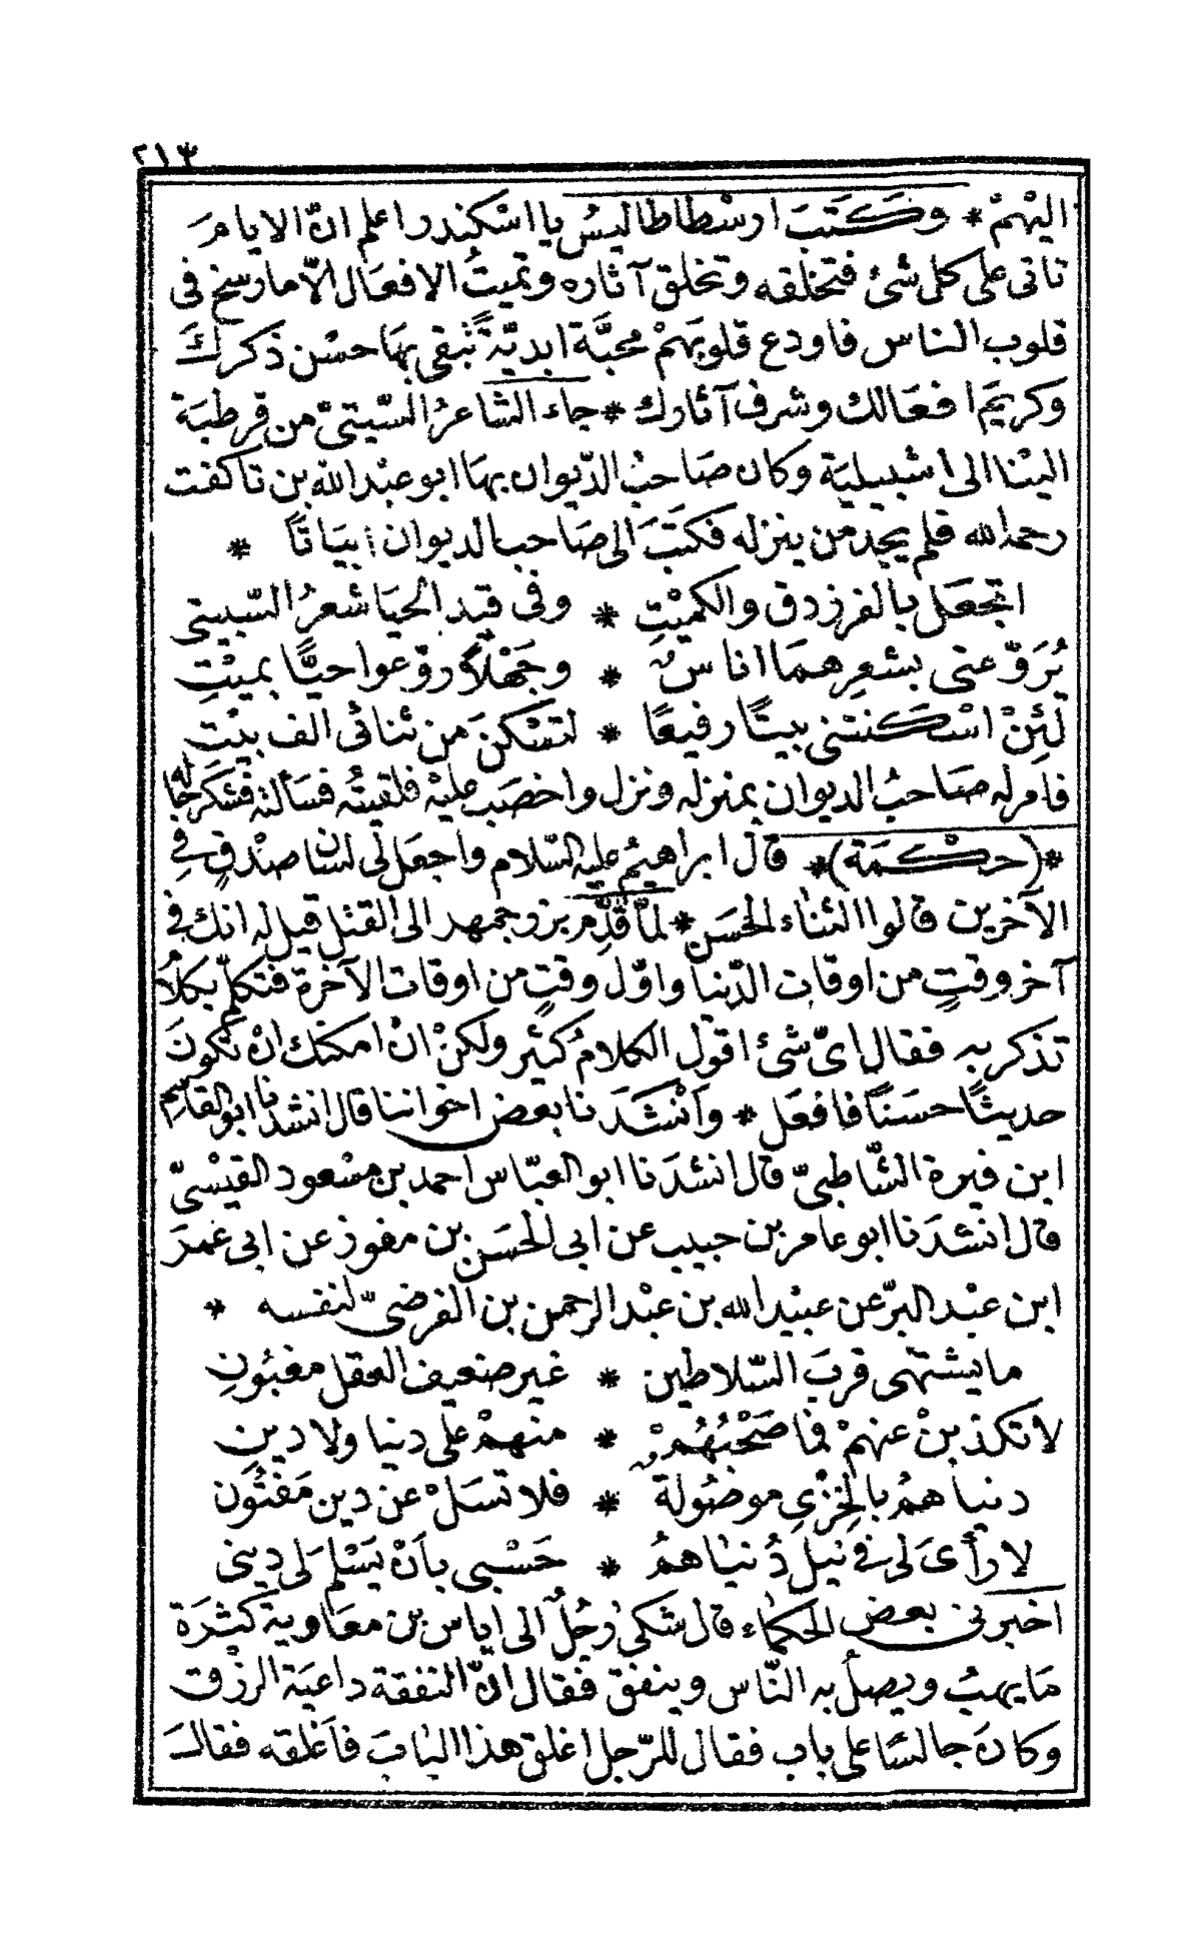 ٢١٣
اليْهمْ * وَكَتَبَ ارسْطاطاليسُ يا اسْكندر اعلم انّ الايامَ
تاتى على كل شئ فتخلقه وتخلق آثاره وتميتُ الافعَال الّا مارسخ فى
قلوب الناس فاودع قلوبهَمْ محبَّة ابديّةً تبقى بهَا حسْن ذكركَ
وكريَم افعَالك وشرف آثارك * جاء الشاعرُ السّبتىّ من قرطبَة
اليْنا الى اشبيلية وكان صَاحبُ الدّيوان بهَا ابو عبْد الله بن تاكفت
رحمه الله فلم يجد من ينزله فكتَبَ الى صَاحب الديوان ابيَاتًا *
اتجعَل بالفرزدق والكميْتِ * وفى قيْد الحيَا شعرُ السّبيتى
يُرَوّعنى بشعرِهمَا اناسٌ * وجَهْلاً روّعوا حيًّا بميْتِ
لَئِنْ اسْكنتنى بيتًا رفيعًا * لتسْكنَ من ثنائى الف بيْتِ
فامر له صَاحبُ الديوان بمنزله ونزل واخصَب عليْه فلقيتُه فسَألته فشكر حَاله
*(حكْمَة)* قال ابراهيمُ عليه السّلام واجعَل لى لسَان صدْقٍ فِى
الآخرين قالوا الثناء الحسَن * لمَّا قُدِّم بزرجمهر الى القتل قيل له انك فى
آخر وقتٍ من اوقات الدّنيا واوّل وقتٍ من اوقات الآخرة فتكلّم بكلامٍ
تذكر به فقال اىّ شئ اقول الكلامُ كثير ولكنْ انْ امكنك انْ تكونَ
حديثًا حسَنًا فافعَل * وَانْشَدَنا بعض اخواننا قال انشدنا ابو القاسِم
ابن فيرة الشّاطبىّ قال انشدَنا ابو العبّاس احمد بن مسْعود القيْسْىّ
قال انشدَنا ابو عامر بن حبيب عن ابى الحسَن بن مفوز عن ابى عمَر
ابن عبْد البرّ عن عبيْد الله بن عبْد الرحمن بن الفرضىّ لنفسه *
ما يشتهى قربَ السّلاطين * غير ضعيف العقل مغبُونِ
لا تكذبنْ عنهمْ فما صَحْبُهُمْ * منهمْ على دنيا ولا دينِ
دنياهمُ بالخِزْىِ موصُولة * فلا تسَلْ عن دين مَفتُون
لا رأىَ لى فى نيْل دُنياهمُ * حَسْبى بأَنْ يَسْلمَ لى دينى
اخبرنى بعض الحكماء قال شكى رجُلٌ الى اياس بن معَاوية كثرَة
مَا يهبُ ويصلُ به النّاس وينفق فقال انّ النفقة داعيَة الرزق
وكانَ جالسًا على باب فقال للرّجل اغلق هذا البابَ فاَغلقه فقالَ